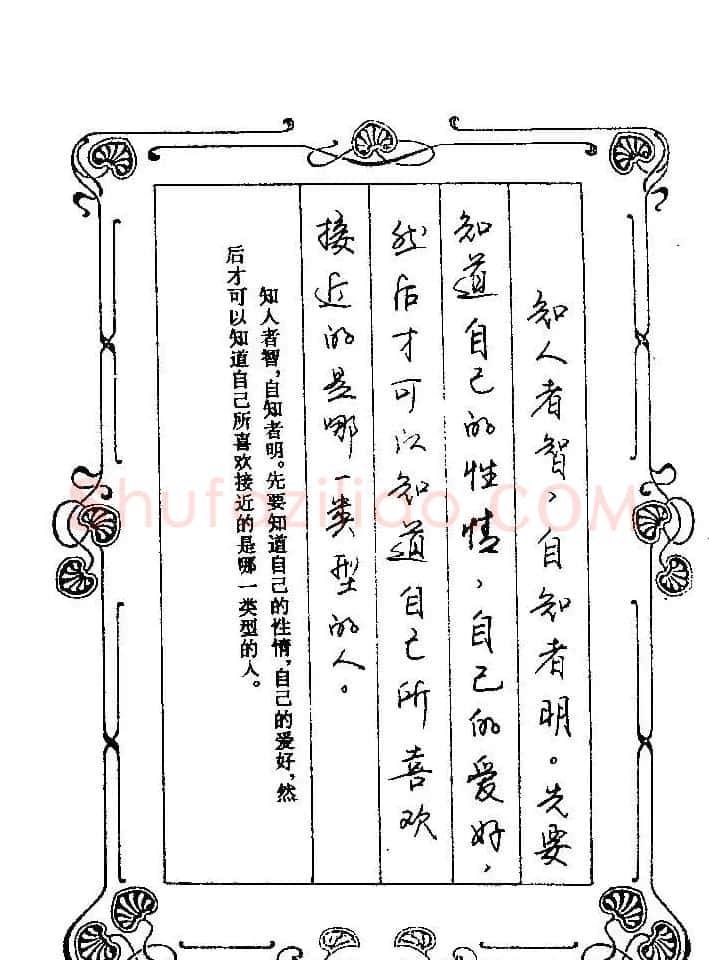 知人者智，自知者明。先要
知道自己的性情，自己的爱好，
然后才可以知道自己所喜欢
接近的是哪一类型的人。
知人者智，自知者明。先要知道自己的性情，自己的爱好，然
后才可以知道自己所喜欢接近的是哪一类型的人。
Shufaziliao.COM